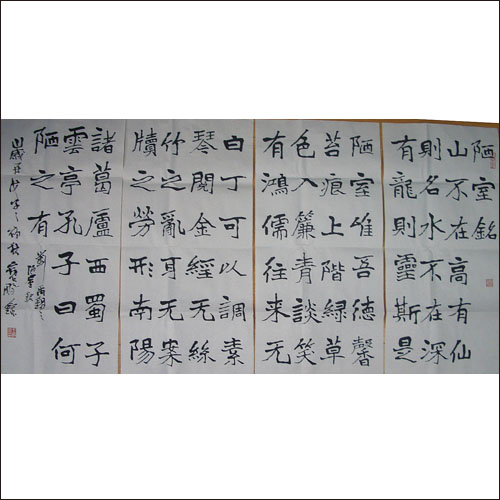 陋室銘
山不在高有仙
則名水不在深
有龍則靈斯是
陋室惟吾德馨
苔痕上階綠草
色入簾青談笑
有鴻儒往來无
白丁可以調素
琴閱金經无絲
竹之亂耳无案
牘之勞形南陽
諸葛廬西蜀子
雲亭孔子曰何
陋之有
劉禹錫